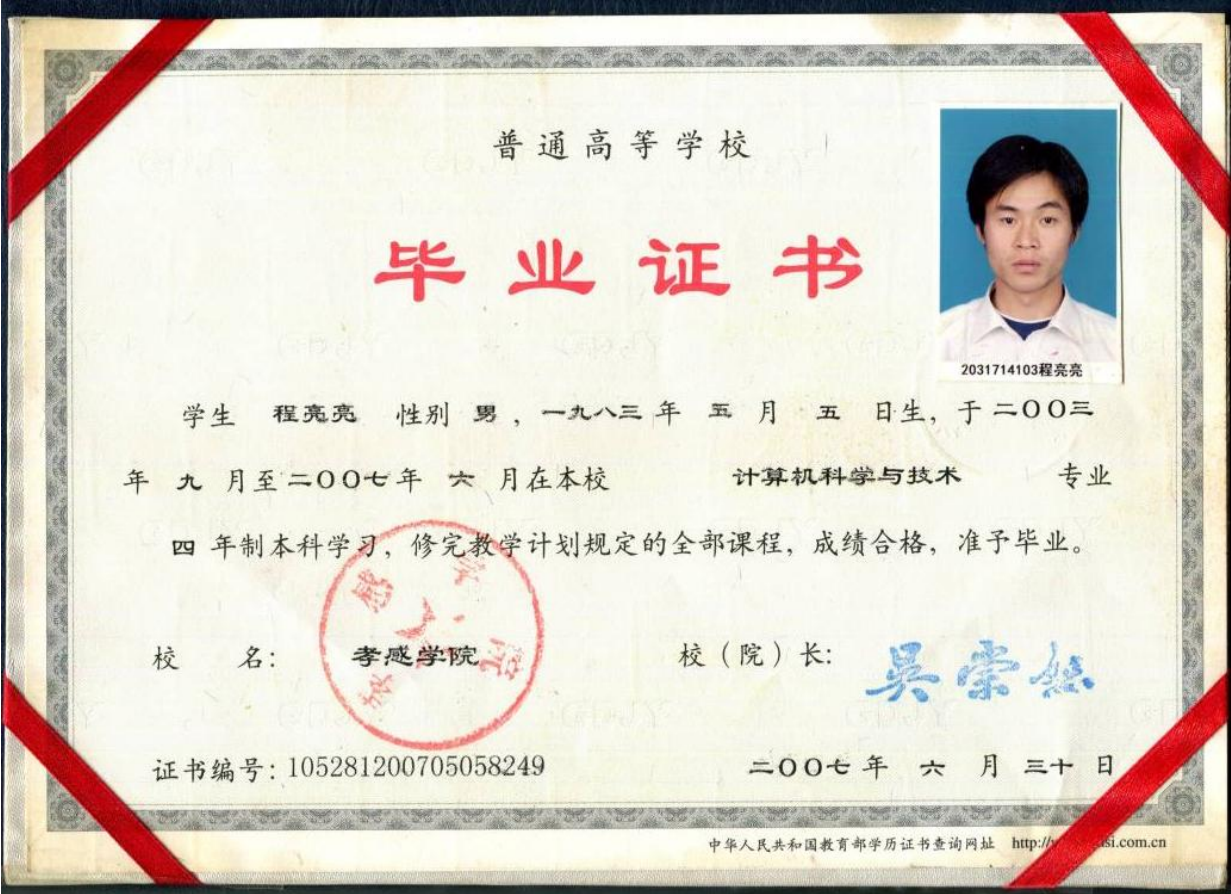 普通高等学校
毕业证书
2031714103程亮亮
学生 程亮亮 性别 男，一九八三年 五 月 五 日生，于二〇〇三
年 九 月至二〇〇七年 六 月在本校 计算机科学与技术 专业
四 年制本科学习，修完教学计划规定的全部课程，成绩合格，准予毕业。
校 名： 孝感学院 校（院）长：
证书编号：105281200705058249 二〇〇七年 六 月 三十 日
中华人民共和国教育部学历证书查询网址 http://
si.com.cn